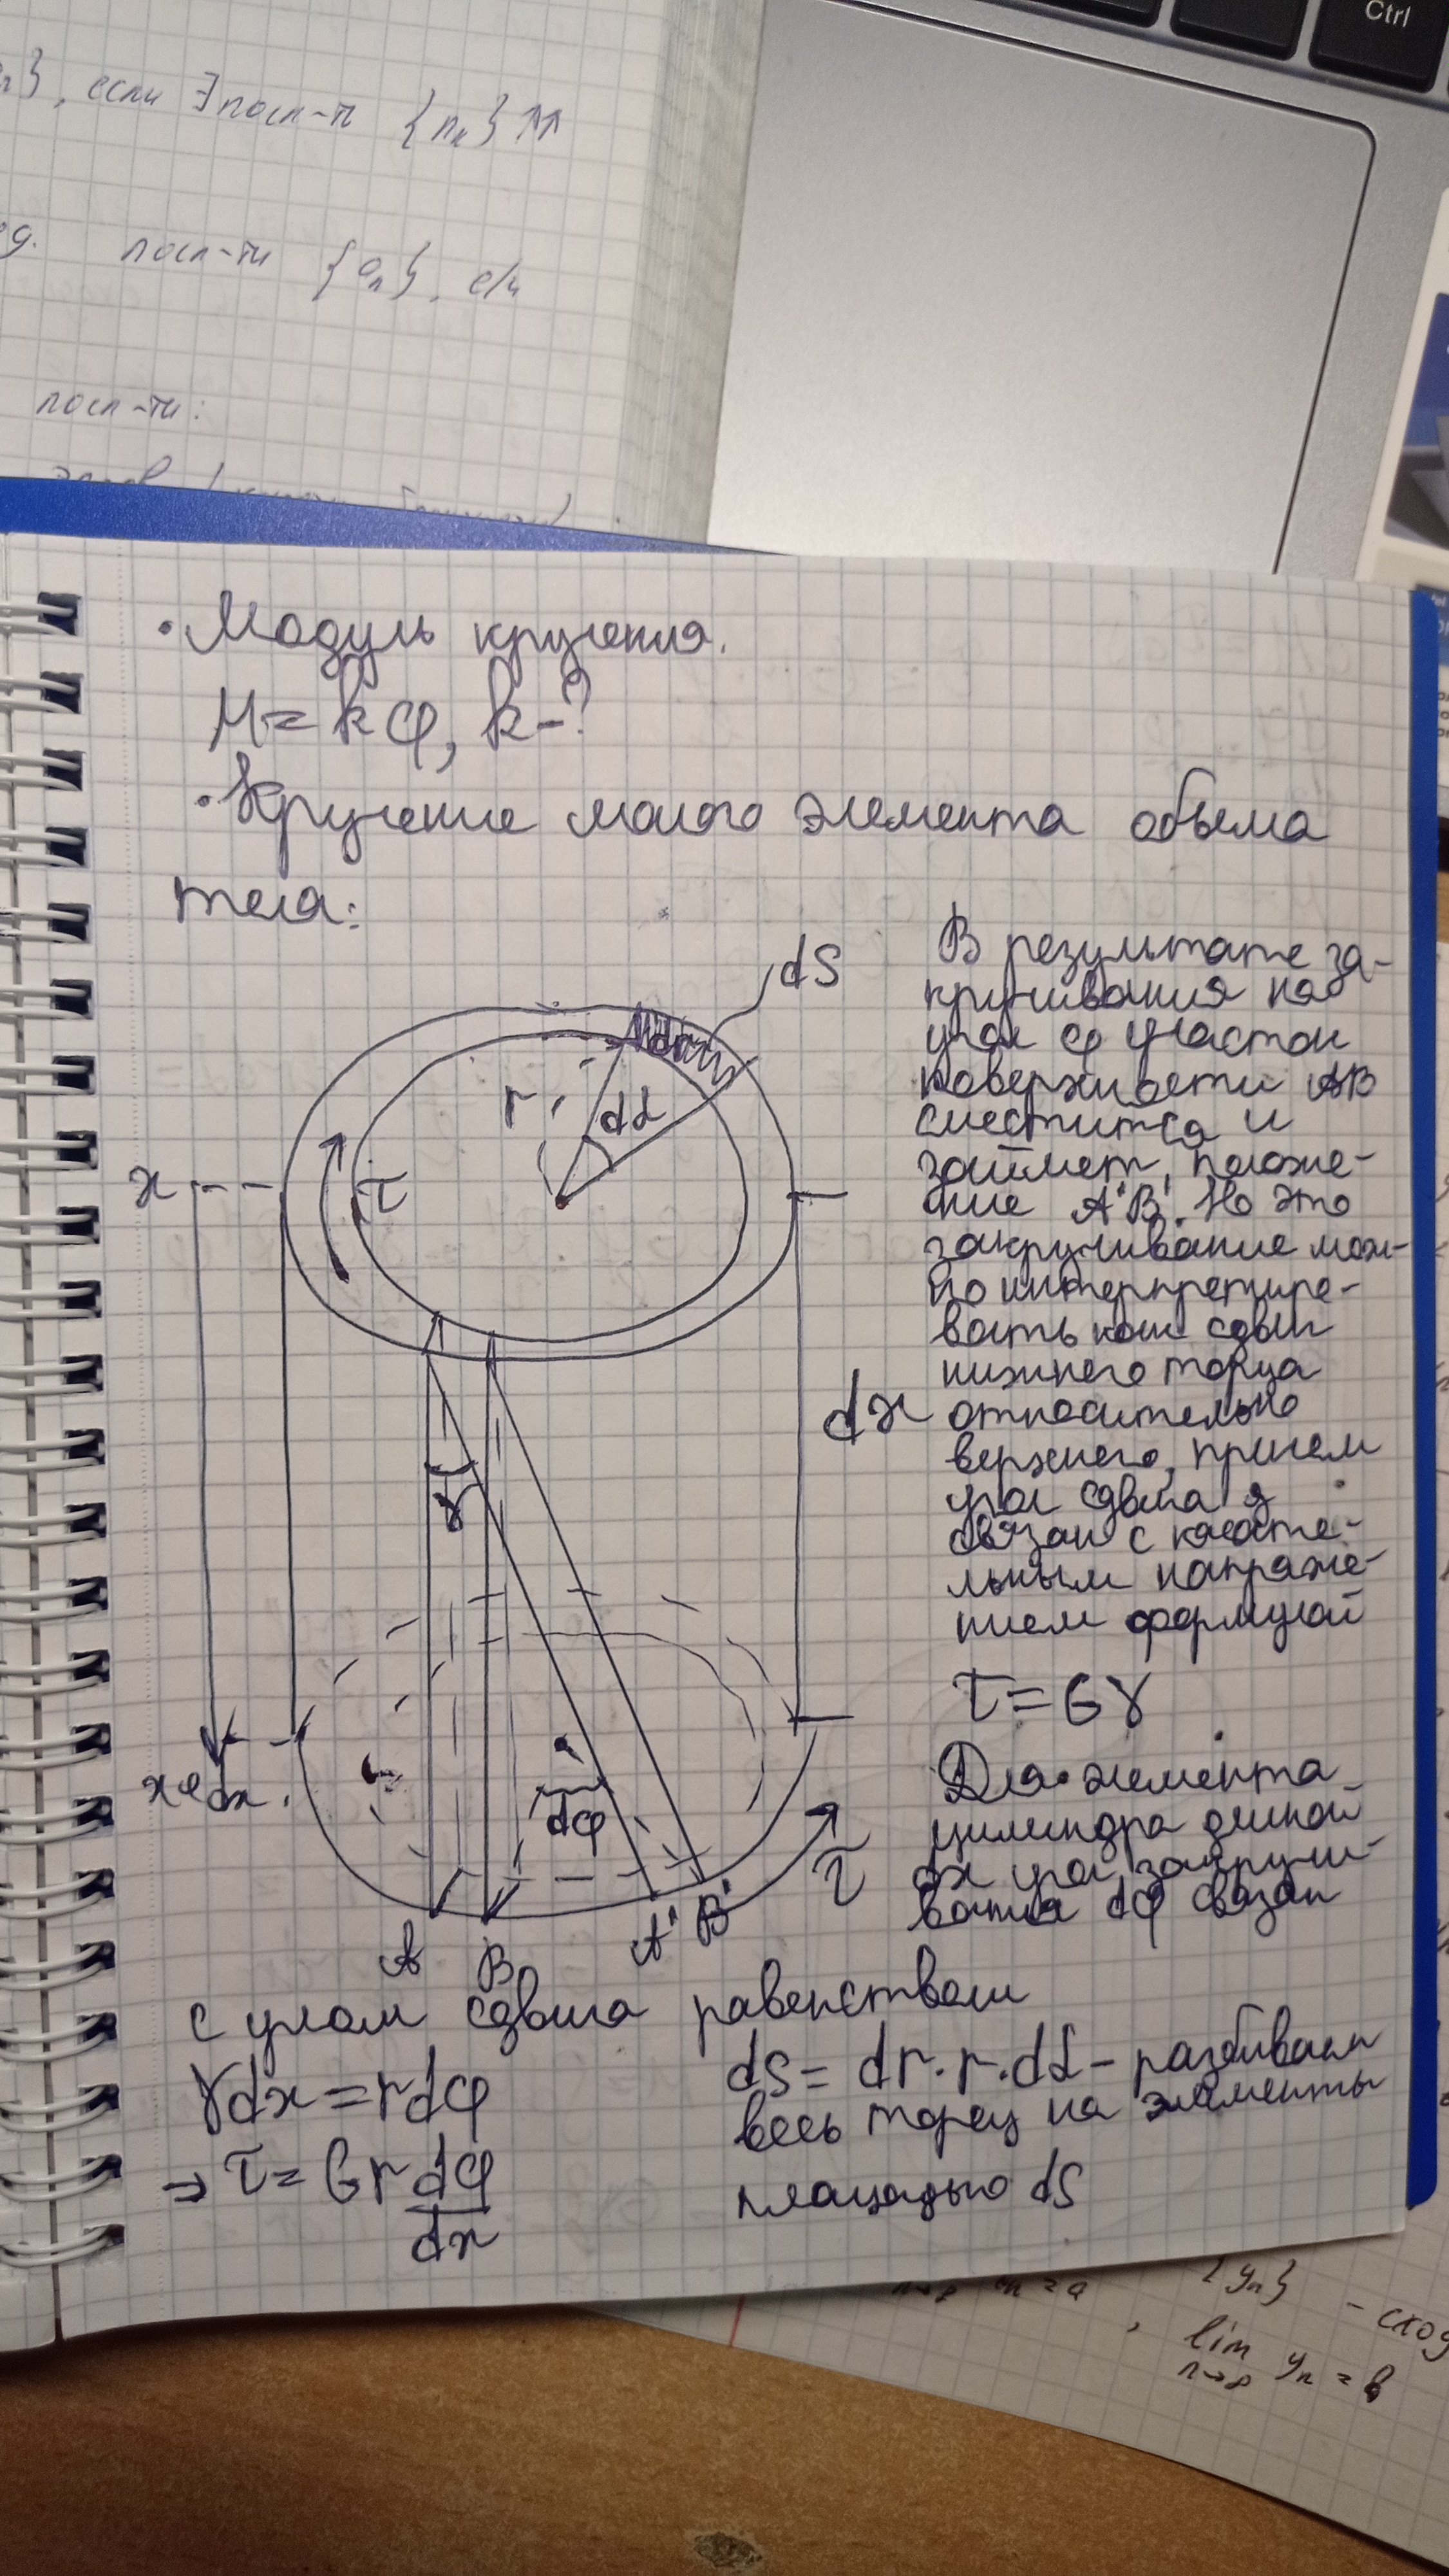 Ctrl
, если ∃ посл-ть {nₖ} ↑↑
посл-ти {aₙ}, е/и
посл-ти:
• Модуль кручения.
M = kφ, k-?
• Кручение малого элемента объема
тела:
dS
dr
r
dα
τ
x
В результате за-
кручивания на
угол φ участок
поверхности AB
сместится и
займет положе-
ние A'B'. Но это
закручивание мож-
но интерпретиро-
вать как сдвиг
нижнего торца
dx
относительно
верхнего, причем
угол сдвига γ
связан с касате-
льным напряже-
нием формулой
γ
τ = Gγ
x+dx
dφ
τ
A B A' B'
Для элемента
цилиндра длиной
dx угол закручи-
вания dφ связан
с углом сдвига равенством
γdx = rdφ
dS = dr·r·dα - разбиваем
весь торец на элементы
→ τ = Gr dφ/dx
площадью dS
{yₙ} - сход
lim yₙ = b
n→∞